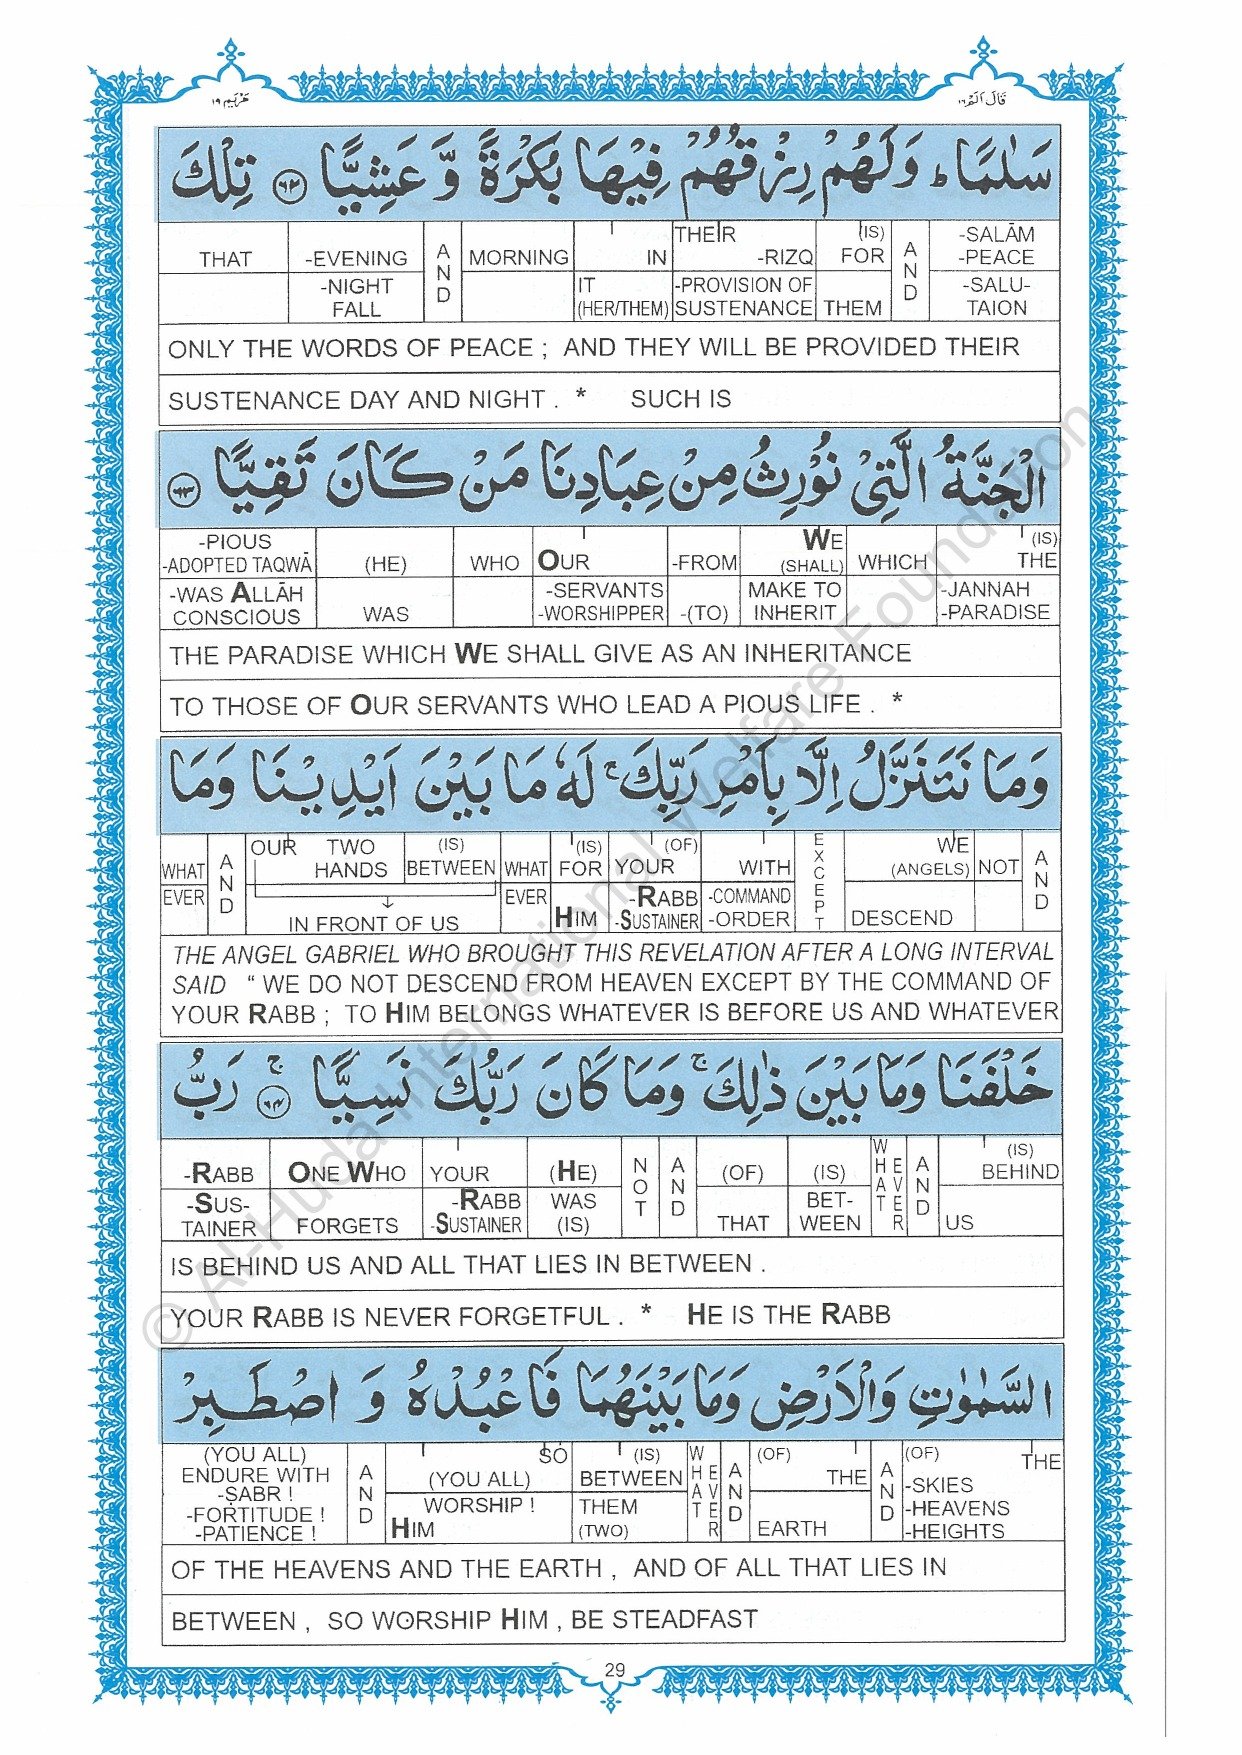 مَرْيَم ١٩
قَالَ اَلَمْ ١٦
سَلٰمًا ؕ وَلَهُمْ رِزْقُهُمْ فِيْهَا بُكْرَةً وَّ عَشِيًّا ﴿٦٢﴾ تِلْكَ
THAT -EVENING AND MORNING IN THEIR -RIZQ (IS) FOR AND -SALĀM -PEACE
-NIGHT FALL IT (HER/THEM) -PROVISION OF SUSTENANCE THEM -SALU-TAION
ONLY THE WORDS OF PEACE ; AND THEY WILL BE PROVIDED THEIR
SUSTENANCE DAY AND NIGHT . * SUCH IS
الْجَنَّةُ الَّتِيْ نُوْرِثُ مِنْ عِبَادِنَا مَنْ كَانَ تَقِيًّا ﴿٦٣﴾
-PIOUS -ADOPTED TAQWĀ (HE) WHO OUR -FROM WE (SHALL) WHICH (IS) THE
-WAS ALLĀH CONSCIOUS WAS -SERVANTS -WORSHIPPER -(TO) MAKE TO INHERIT -JANNAH -PARADISE
THE PARADISE WHICH WE SHALL GIVE AS AN INHERITANCE
TO THOSE OF OUR SERVANTS WHO LEAD A PIOUS LIFE . *
وَمَا نَتَنَزَّلُ اِلَّا بِاَمْرِ رَبِّكَ ۚ لَهٗ مَا بَيْنَ اَيْدِيْنَا وَمَا
WHAT AND OUR TWO HANDS (IS) BETWEEN WHAT (IS) FOR YOUR (OF) WITH EXCEPT WE (ANGELS) NOT AND
EVER IN FRONT OF US EVER HIM -RABB -SUSTAINER -COMMAND -ORDER DESCEND
THE ANGEL GABRIEL WHO BROUGHT THIS REVELATION AFTER A LONG INTERVAL
SAID “ WE DO NOT DESCEND FROM HEAVEN EXCEPT BY THE COMMAND OF
YOUR RABB ; TO HIM BELONGS WHATEVER IS BEFORE US AND WHATEVER
خَلْفَنَا وَمَا بَيْنَ ذٰلِكَ ۚ وَمَا كَانَ رَبُّكَ نَسِيًّا ۚ ﴿٦٤﴾ رَبُّ
-RABB ONE WHO YOUR (HE) NOT AND (OF) (IS) WHAT EVER AND (IS) BEHIND
-SUS-TAINER FORGETS -RABB -SUSTAINER WAS (IS) THAT BET-WEEN US
IS BEHIND US AND ALL THAT LIES IN BETWEEN .
YOUR RABB IS NEVER FORGETFUL . * HE IS THE RABB
السَّمٰوٰتِ وَالْاَرْضِ وَمَا بَيْنَهُمَا فَاعْبُدْهُ وَ اصْطَبِرْ
(YOU ALL) ENDURE WITH -ṢABR ! -FORTITUDE ! -PATIENCE ! AND SO (YOU ALL) (IS) BETWEEN WHAT EVER AND (OF) THE AND (OF) THE -SKIES -HEAVENS -HEIGHTS
WORSHIP ! HIM THEM (TWO) EARTH
OF THE HEAVENS AND THE EARTH , AND OF ALL THAT LIES IN
BETWEEN , SO WORSHIP HIM , BE STEADFAST
29
© Al-Huda International Welfare Foundation